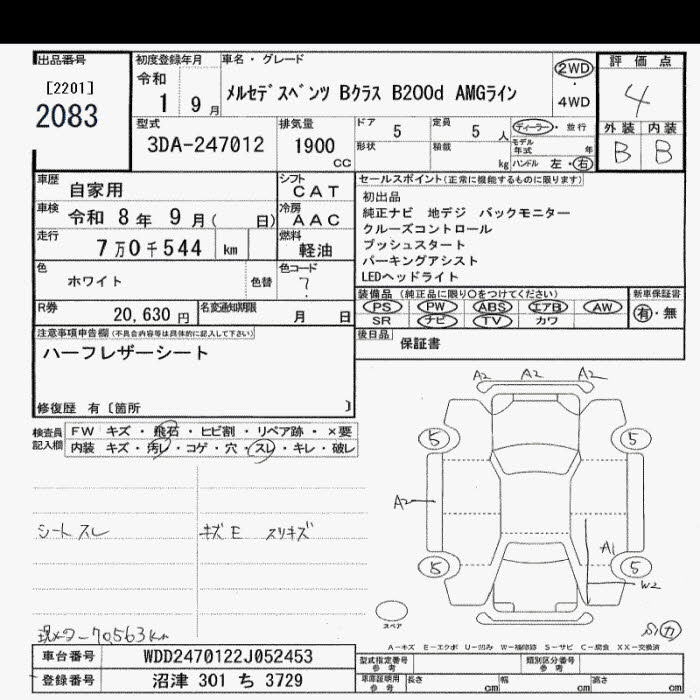 出品番号
[2201]
2083
初度登録年月
令和
1 9月
車名・グレード
メルセデスベンツ Bクラス B200d AMGライン
2WD
4WD
評価点
4
外装 内装
B B
型式
3DA-247012
排気量
1900
CC
ドア
5
定員
5 人
形状
積載
kg
ディーラー・並行
モデル年式 年
ハンドル 左・右
車歴
自家用
シフト
CAT
車検
令和 8年 9月( 日)
冷房
AAC
走行
7万0千544 km
燃料
軽油
色
ホワイト
色替
色コード
?
R券
20,630 円
名変通知期限
月 日
セールスポイント(正常に機能するものに限ります)
初出品
純正ナビ 地デジ バックモニター
クルーズコントロール
プッシュスタート
パーキングアシスト
LEDヘッドライト
装備品 (純正品に限り○をつけてください)
PS PW ABS エアB AW
SR ナビ TV カワ
新車保証書
有・無
後日品
保証書
注意事項申告欄(不具合内容等は具体的に記入して下さい)
ハーフレザーシート
修復歴 有〔箇所 〕
検査員記入欄
FW キズ・飛石・ヒビ割・リペア跡・×要
内装 キズ・汚レ・コゲ・穴・スレ・キレ・破レ
シートスレ
キズE スリキズ
現メーター70563km
A2 A2 A2
5 5
A2
A1
5 5
W2
スペア
A-キズ E-エクボ U-凹み W-補修跡 S-サビ C-腐食 XX-交換済
車台番号
WDD2470122J052453
登録番号
沼津 301 ち 3729
型式指定番号 参考
類別区分番号 参考
車庫証明用 参考
長さ cm 幅 cm 高さ cm